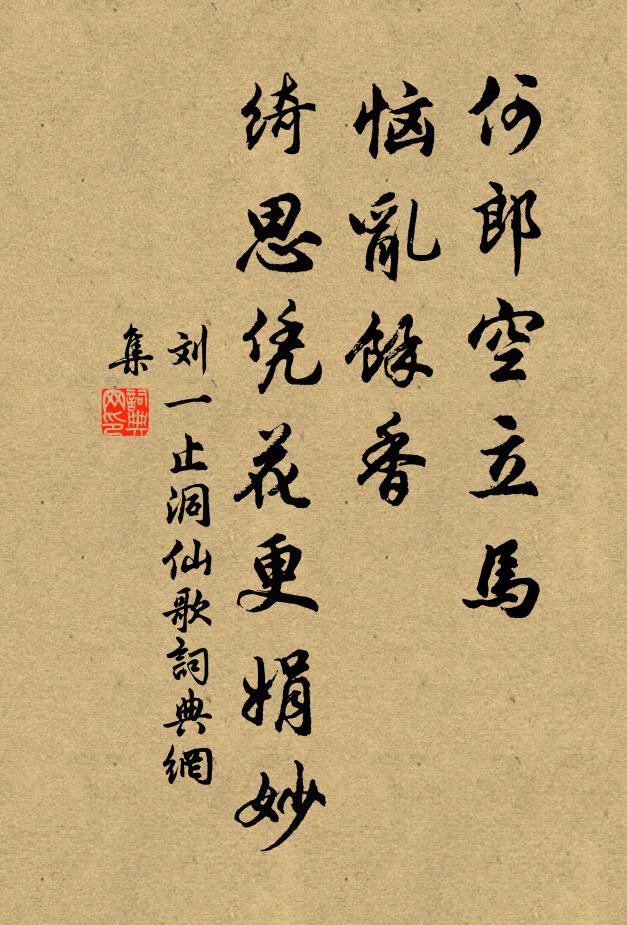 何郎空立馬
恼亂餘香
绮思凭花更娟妙
刘一止洞仙歌詞典網
集
詞典
网印